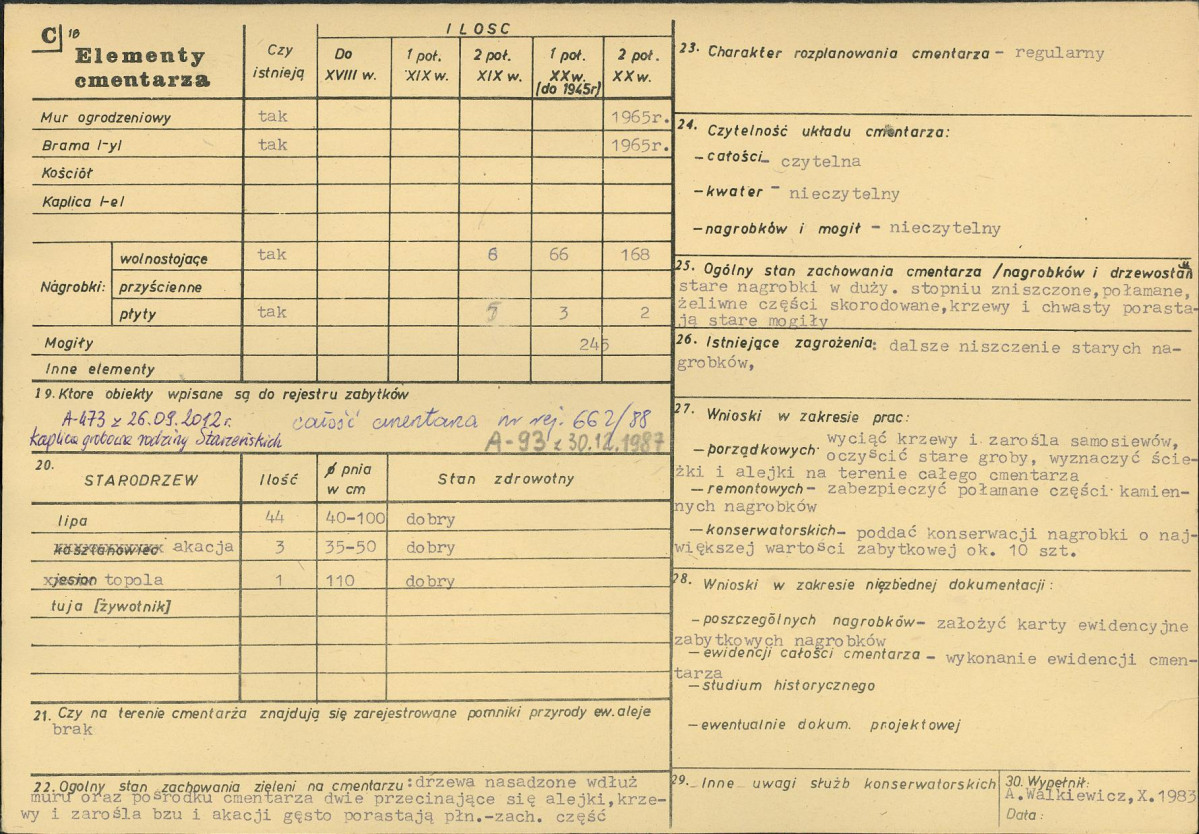 C 18
Elementy cmentarza
Czy istnieją
ILOSC
Do XVIII w.
1 poł. XIX w.
2 poł. XIX w.
1 poł. XX w. (do 1945r)
2 poł. XX w.
Mur ogrodzeniowy tak 1965r.
Brama I-yl tak 1965r.
Kościół
Kaplica I-el
Nagrobki:
wolnostojące tak 6 66 168
przyścienne
płyty tak 3 2
Mogiły 245
Inne elementy
19. Ktore obiekty wpisane są do rejestru zabytków
A-473 z 26.09.2012 r.
kaplica grobowa rodziny Starzeńskich
całość cmentarza nr rej. 662/88
A-93 z 30.12.1987
20.
STARODRZEW Ilość ø pnia w cm Stan zdrowotny
lipa 44 40-100 dobry
kasztanowiec akacja 3 35-50 dobry
jesion topola 1 110 dobry
tuja [żywotnik]
21. Czy na terenie cmentarża znajdują się zarejestrowane pomniki przyrody ew. aleje
brak
22. Ogolny stan zachowania zieleni na cmentarzu: drzewa nasadzone wdłuż
muru oraz pośrodku cmentarza dwie przecinające się alejki, krze-
wy i zarośla bzu i akacji gęsto porastają płn.-zach. część
23. Charakter rozplanowania cmentarza - regularny
24. Czytelność układu cmentarza:
- całości - czytelna
- kwater - nieczytelny
- nagrobków i mogił - nieczytelny
25. Ogólny stan zachowania cmentarza /nagrobków i drzewostan
stare nagrobki w duży. stopniu zniszczone, połamane,
żeliwne części skorodowane, krzewy i chwasty porasta-
ją stare mogiły
26. Istniejące zagrożenia: dalsze niszczenie starych na-
grobków,
27. Wnioski w zakresie prac:
- porządkowych - wyciąć krzewy i zarośla samosiewów,
oczyścić stare groby, wyznaczyć ście-
żki i alejki na terenie całego cmentarza
- remontowych - zabezpieczyć połamane części kamien-
nych nagrobków
- konserwatorskich - poddać konserwacji nagrobki o naj-
większej wartości zabytkowej ok. 10 szt.
28. Wnioski w zakresie niezbednej dokumentacji:
- poszczególnych nagrobków - założyć karty ewidencyjne
zabytkowych nagrobków
- ewidencji całości cmentarza - wykonanie ewidencji cmen-
tarza
- studium historycznego
- ewentualnie dokum. projektowej
29. Inne uwagi służb konserwatorskich
30. Wypełnił:
A. Walkiewicz, X. 1983
Data: